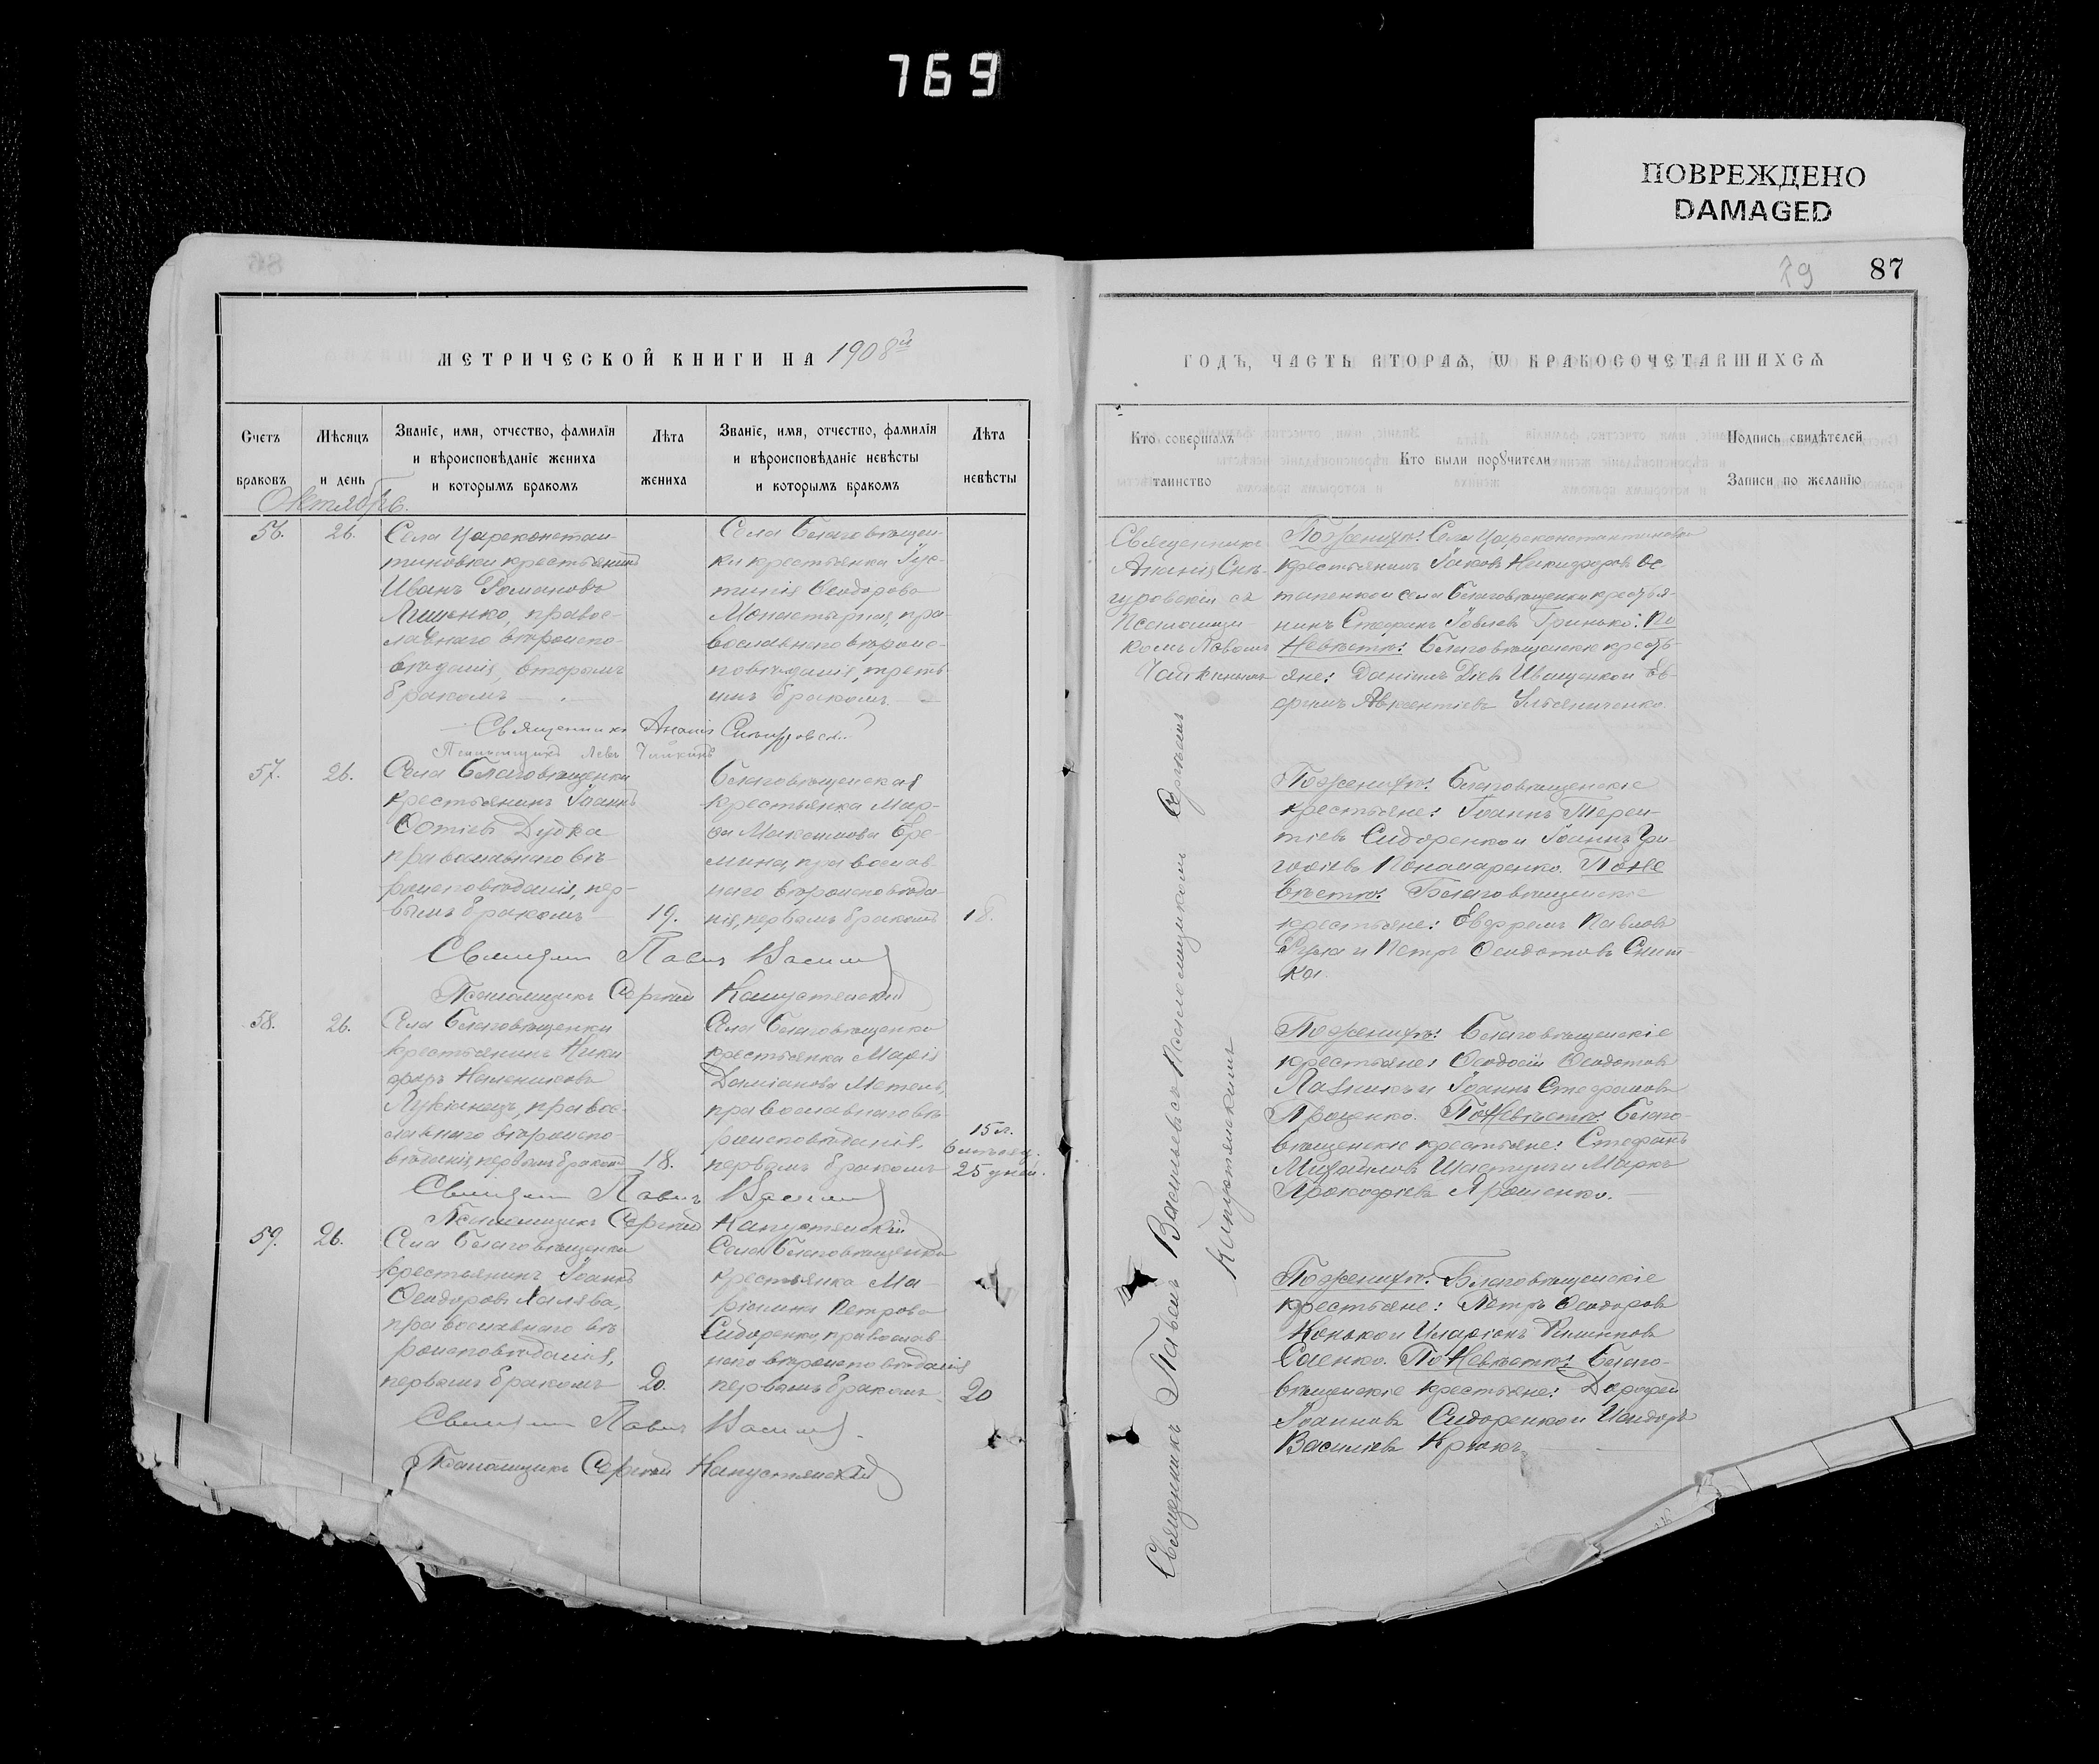 769
ПОВРЕЖДЕНО
DAMAGED
79 87
МЕТРИЧЕСКОЙ КНИГИ НА 1908й
Счетъ браковъ
Мѣсяцъ и день
Званіе, имя, отчество, фамилія
и вѣроисповѣданіе жениха
и которымъ бракомъ
Лѣта жениха
Званіе, имя, отчество, фамилія
и вѣроисповѣданіе невѣсты
и которымъ бракомъ
Лѣта невѣсты
Октябрь.
56. 26.
Села Цареконстан-
тиновки крестьянинъ
Иванъ Романовъ
Лищенко, правос-
лавнаго вѣроиспо-
вѣданія, вторымъ
бракомъ
Села Благовѣщен-
ки крестьянка Іус-
тинія Ѳеодорова
Монастырная, пра-
вославнаго вѣроис-
повѣданія, треть-
имъ бракомъ
Священникъ Ананія
Псаломщикъ Левъ Чайкинъ
57. 26.
Села Благовѣщенки
крестьянинъ Іоаннъ
Фотіевъ Дудка
православнаго вѣ-
роисповѣданія, пер-
вымъ бракомъ
19.
Благовѣщенская
крестьянка Мар-
ѳа Максимова Ере-
мина, православ-
наго вѣроисповѣда-
нія, первымъ бракомъ
18.
Священникъ Павелъ Васильевъ
Псаломщикъ Сергій Капустянскій
58. 26.
Села Благовѣщенки
крестьянинъ Ники-
форъ
Лукіанецъ, правос-
лавнаго вѣроиспо-
вѣданія, первымъ бракомъ
18.
Села Благовѣщенки
крестьянка Марія
Даміанова Метель,
православнаго вѣ-
роисповѣданія,
первымъ бракомъ
15 л.
6 мѣсяц.
25 дней.
Священникъ Павелъ Васильевъ
Псаломщикъ Сергій Капустянскій
59. 26.
Села Благовѣщенки
крестьянинъ Іоаннъ
Ѳеодоровъ Халява,
православнаго вѣ-
роисповѣданія,
первымъ бракомъ
20.
Села Благовѣщенки
крестьянка Ма-
ріамна Петрова
Сидоренко, православ-
наго вѣроисповѣданія
первымъ бракомъ
20
Священникъ Павелъ Васильевъ
Псаломщикъ Сергій Капустянскій
ГОДЪ, ЧАСТЬ ВТОРАѦ, Ѡ БРАКОСОЧЕТАВШИХСѦ
Кто совершалъ таинство
Кто были порꙋчители
Подпись свидѣтелей
Записи по желанію
Священникъ
Ананія Сне-
гуровскій съ
Псаломщи-
комъ Львомъ
Чайкинымъ
По женихѣ: Села Цареконстантиновки
крестьянинъ Іаковъ Никифоровъ Ос-
тапенко и села Благовѣщенки крестья-
нинъ Стефанъ Іовлевъ Гринько. По
Невѣстѣ: Благовѣщенскіе кресть-
яне: Даніилъ Діевъ Иващенко и Еф-
фимъ Авксентіевъ Ульяниченко.
Священникъ Павелъ Васильевъ съ Псаломщикомъ Сергіемъ
Капустянскимъ
По женихѣ: Благовѣщенскіе
крестьяне: Іоаннъ Терен-
тіевъ Сидоренко и Іоаннъ Гри-
горіевъ Понамаренко. По не-
вѣстѣ: Благовѣщенскіе
крестьяне: Евфремъ Павловъ
и Петръ Ѳеодотовъ Снит-
ка.
По женихѣ: Благовѣщенскіе
крестьяне: Ѳеодосій Ѳеодотовъ
и Іоаннъ Стефановъ
Проценко. По Невѣстѣ: Благо-
вѣщенскіе крестьяне: Стефанъ
Михайловъ Шастунъ и Марко
Прокофіевъ Ярошенко.
По женихѣ: Благовѣщенскіе
крестьяне: Петръ Ѳеодоровъ
Конько и Иларіонъ Филиповъ
Саенко. По Невѣстѣ: Благо-
вѣщенскіе крестьяне: Дорофей
Іоанновъ Сидоренко и Исидоръ
Василіевъ Крюкъ